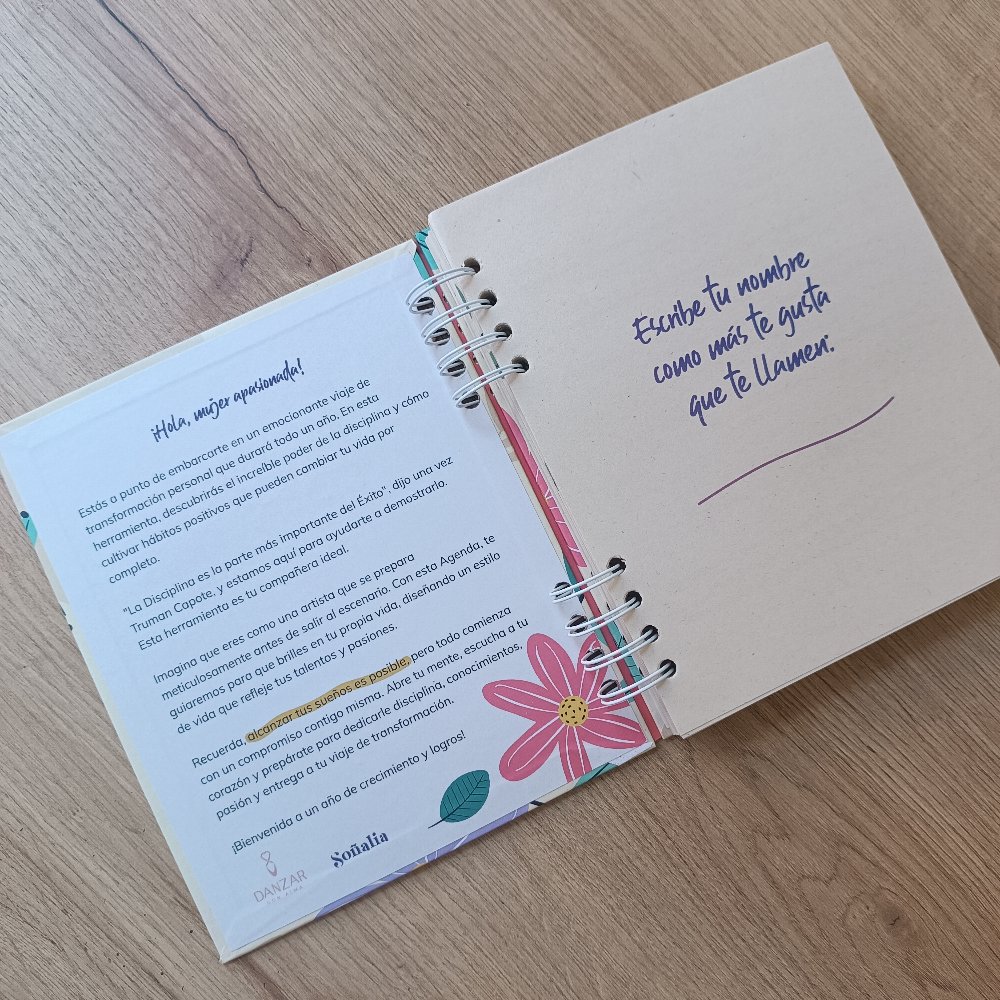 ¡Hola, mujer apasionada!
Estás a punto de embarcarte en un emocionante viaje de
transformación personal que durará todo un año. En esta
herramienta, descubrirás el increíble poder de la disciplina y cómo
cultivar hábitos positivos que pueden cambiar tu vida por
completo.
"La Disciplina es la parte más importante del Éxito". dijo una vez
Truman Capote, y estamos aquí para ayudarte a demostrarlo.
Esta herramienta es tu compañera ideal.
Imagina que eres como una artista que se prepara
meticulosamente antes de salir al escenario. Con esta Agenda, te
guiaremos para que brilles en tu propia vida, diseñando un estilo
de vida que refleje tus talentos y pasiones.
Recuerda, alcanzar tus sueños es posible, pero todo comienza
con un compromiso contigo misma. Abre tu mente, escucha a tu
corazón y prepárate para dedicarle disciplina, conocimientos,
pasión y entrega a tu viaje de transformación.
¡Bienvenida a un año de crecimiento y logros!
DANZAR
CON ALMA
Soñalia
Escribe tu nombre
como más te gusta
que te llamen: